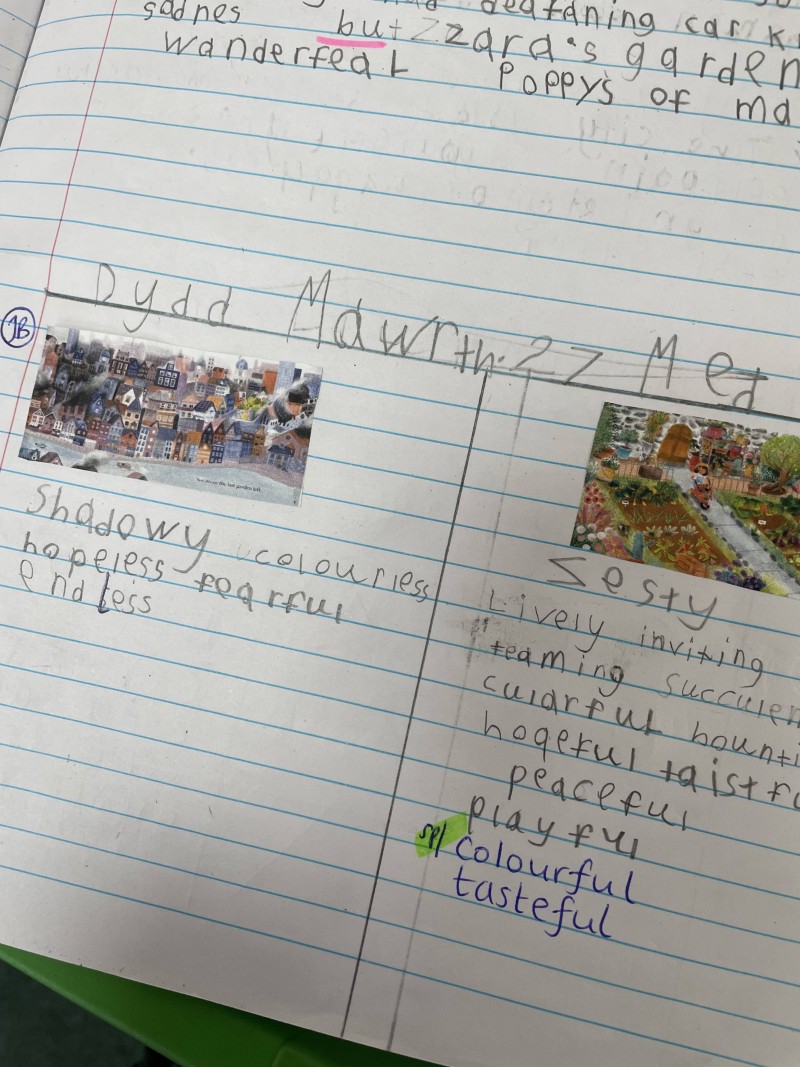 sadnes deafaning car
but Zzara's garden
wanderfeal Poppy's of ma
Dydd Mawrth 27 Med
1B
Shadowy colourless
hopeless fearful
endless
Sesty
Lively inviting
teaming succulen
cularful bounti
hopeful taistfu
peaceful
playful
sp/ colourful
tasteful